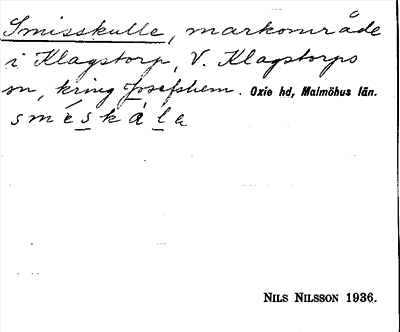 Smisskulle, markområde
i Klagstorp, V. Klagstorps
sn, kring Josefshem. Oxie hd, Malmöhus län.
smeskala
NILS NILSSON 1936.